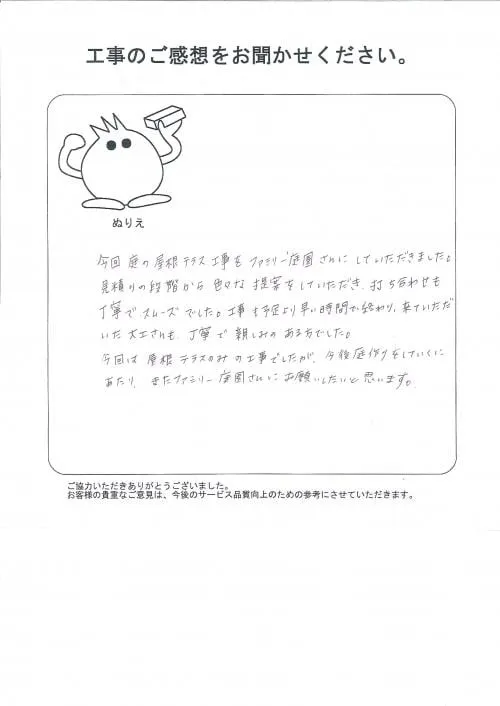 工事のご感想をお聞かせください。
ぬりえ
今回 庭の 屋根 テラス 工事を ファミリー庭園 さんに していただきました。
見積りの段階から 色々な 提案をしていただき、打ち合わせも
丁寧で スムーズ でした。工事も予定より早い時間で終わり、来ていただ
いた 大工さんも、丁寧で 親しみの ある方でした。
今回は 屋根 テラスのみ の工事でしたが、今後庭作りをしていくに
あたり、またファミリー 庭園さんに お願いしたいと思います。
ご協力いただきありがとうございました。
お客様の貴重なご意見は、今後のサービス品質向上のための参考にさせていただきます。